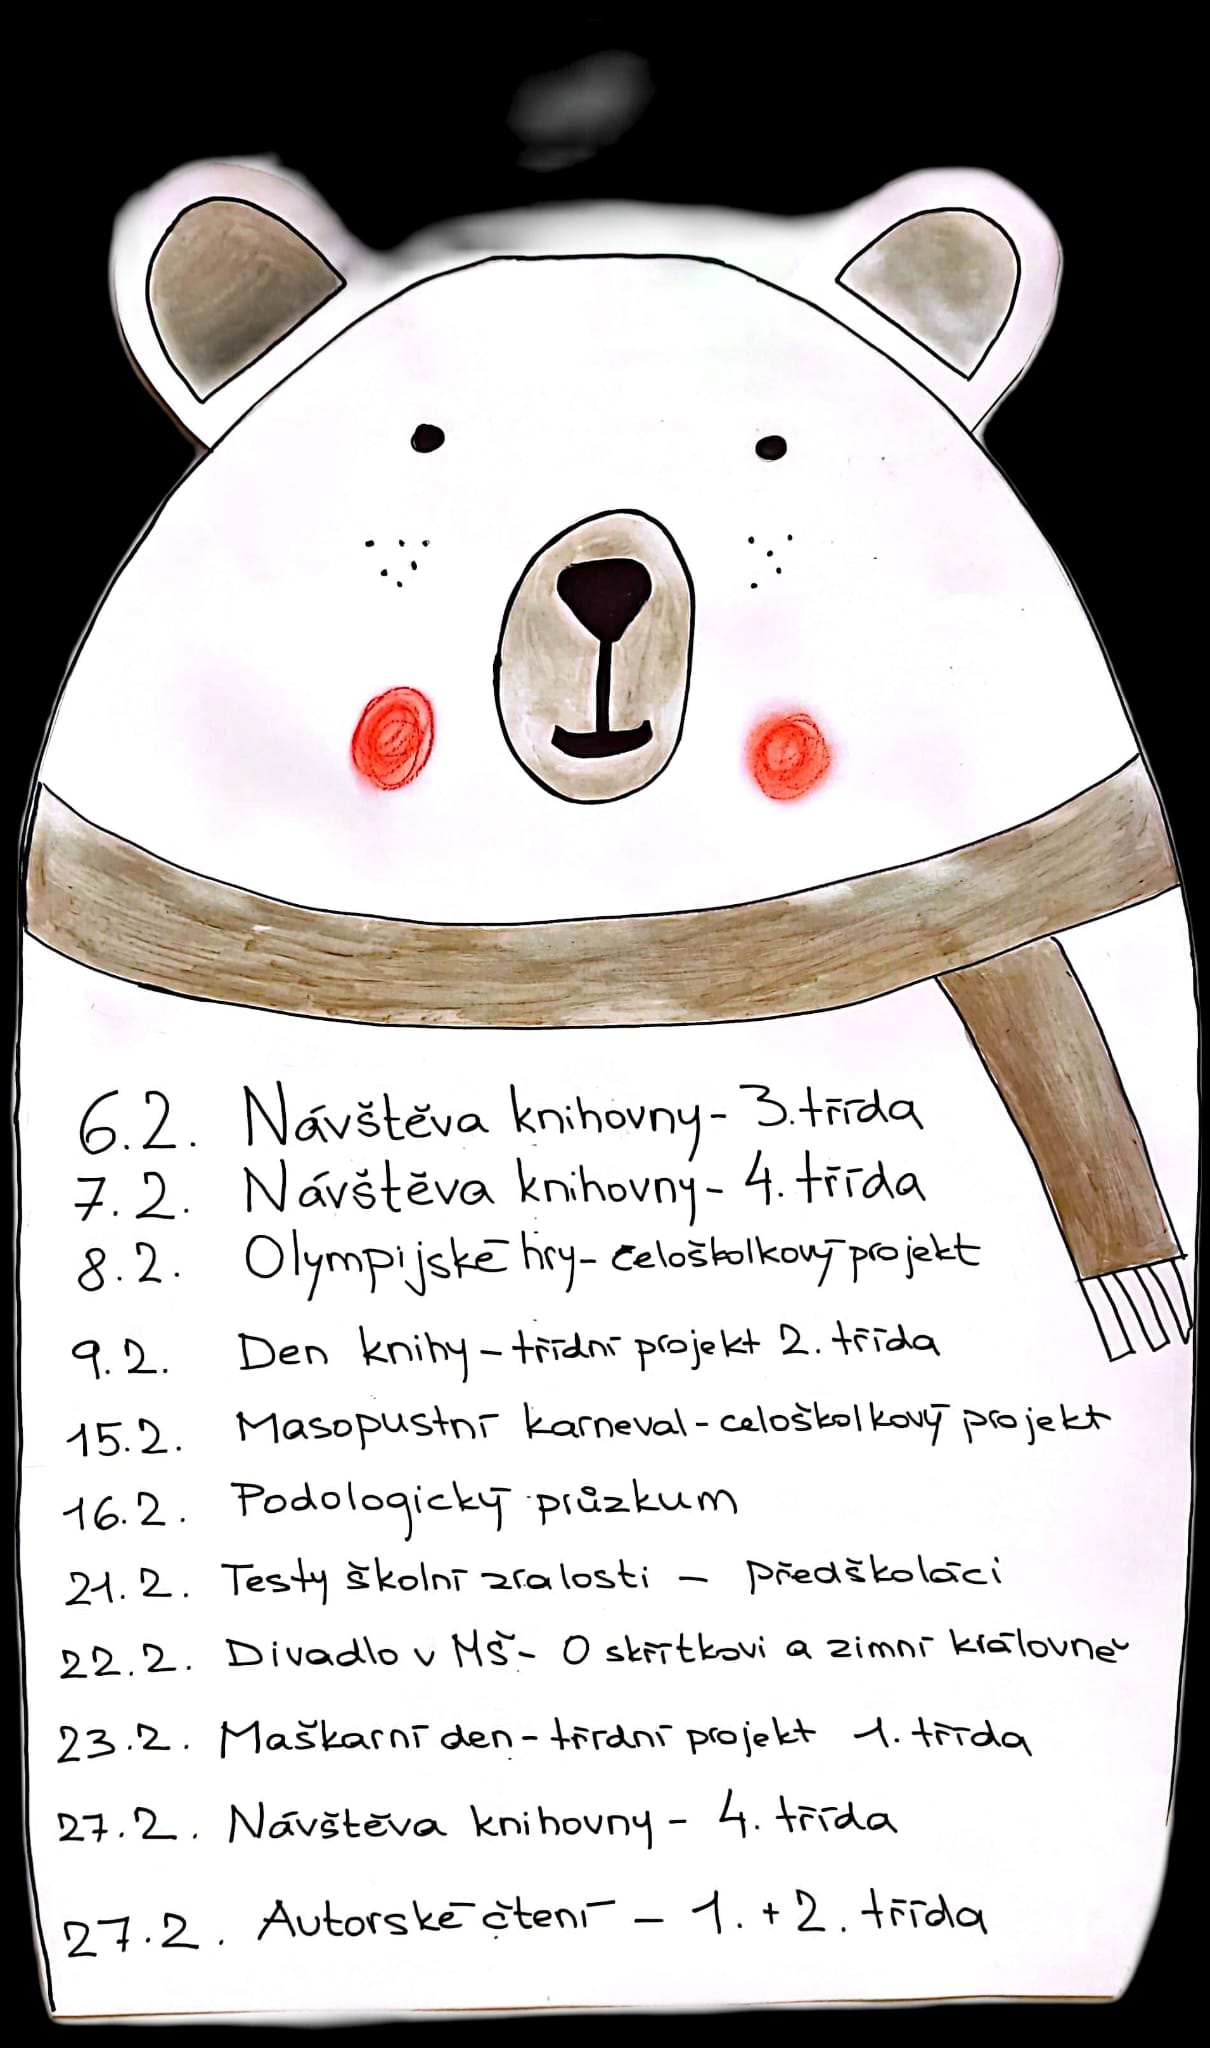 6.2. Návštěva knihovny - 3. třída
7.2. Návštěva knihovny - 4. třída
8.2. Olympijské hry - celoškolkový projekt
9.2. Den knihy - třídní projekt 2. třída
15.2. Masopustní karneval - celoškolkový projekt
16.2. Podologický průzkum
21.2. Testy školní zralosti - předškoláci
22.2. Divadlo v MŠ - O skřítkovi a zimní královně
23.2. Maškarní den - třídní projekt 1. třída
27.2. Návštěva knihovny - 4. třída
27.2. Autorské čtení - 1. + 2. třída